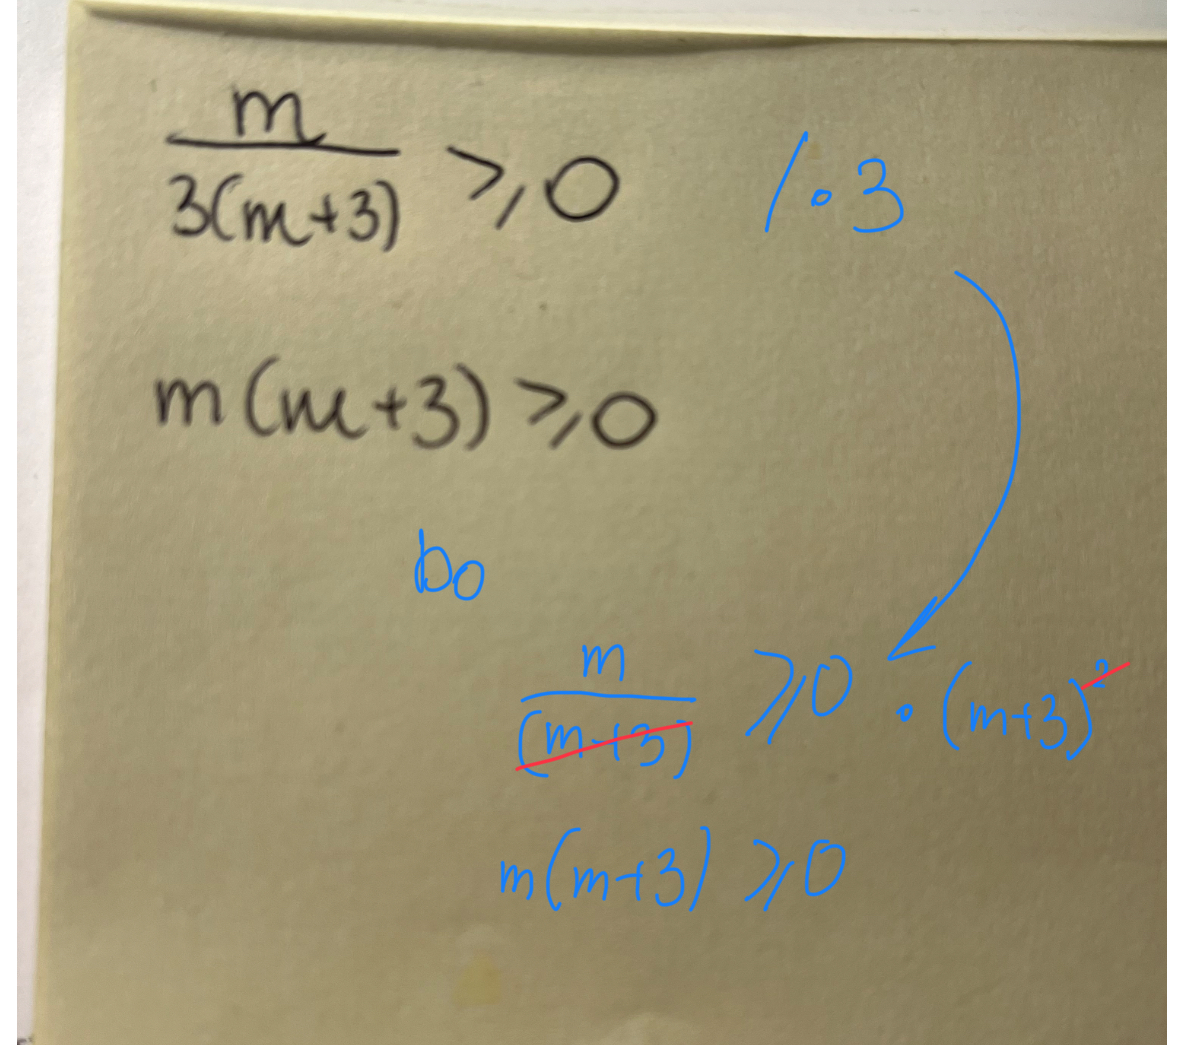 m/(3(m+3)) ⩾ 0 /·3
m(m+3) ⩾ 0
bo
m/(m+3) ⩾ 0 ·(m+3)²
m(m+3) ⩾ 0